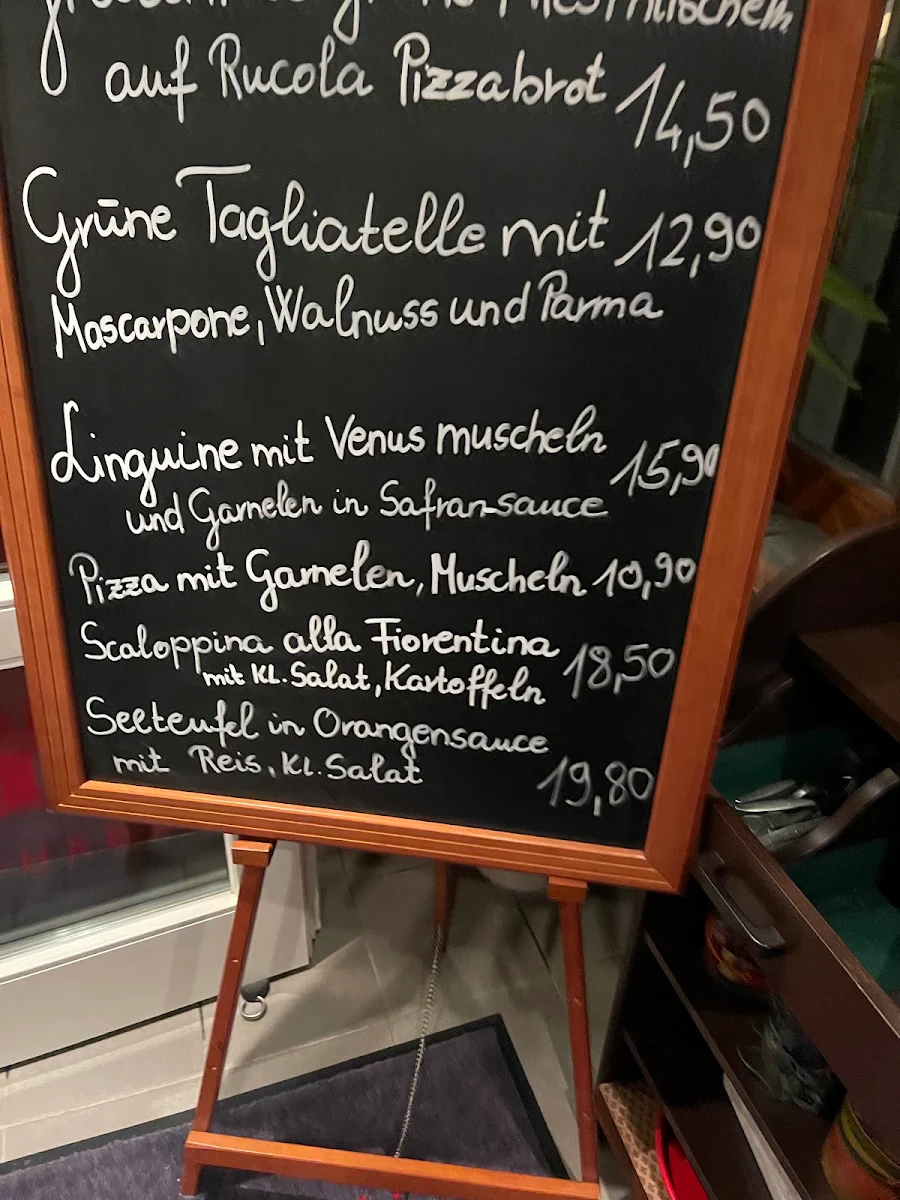 auf Rucola Pizzabrot 14,50
Grüne Tagliatelle mit 12,90
Mascarpone, Walnuss und Parma
Linguine mit Venus muscheln 15,90
und Garnelen in Safran-sauce
Pizza mit Garnelen, Muscheln 10,90
Scaloppina alla Fiorentina 18,50
mit Kl. Salat, Kartoffeln
Seeteufel in Orangensauce
mit Reis, Kl. Salat 19,80